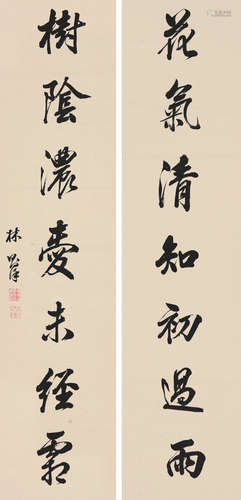 花氣清知初過雨
樹陰濃愛未經霜
林則徐